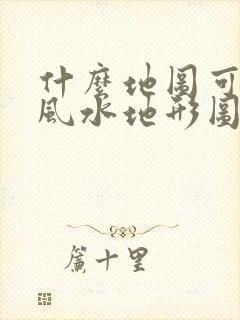 什麼地圖可
風水地形圖
簾十里